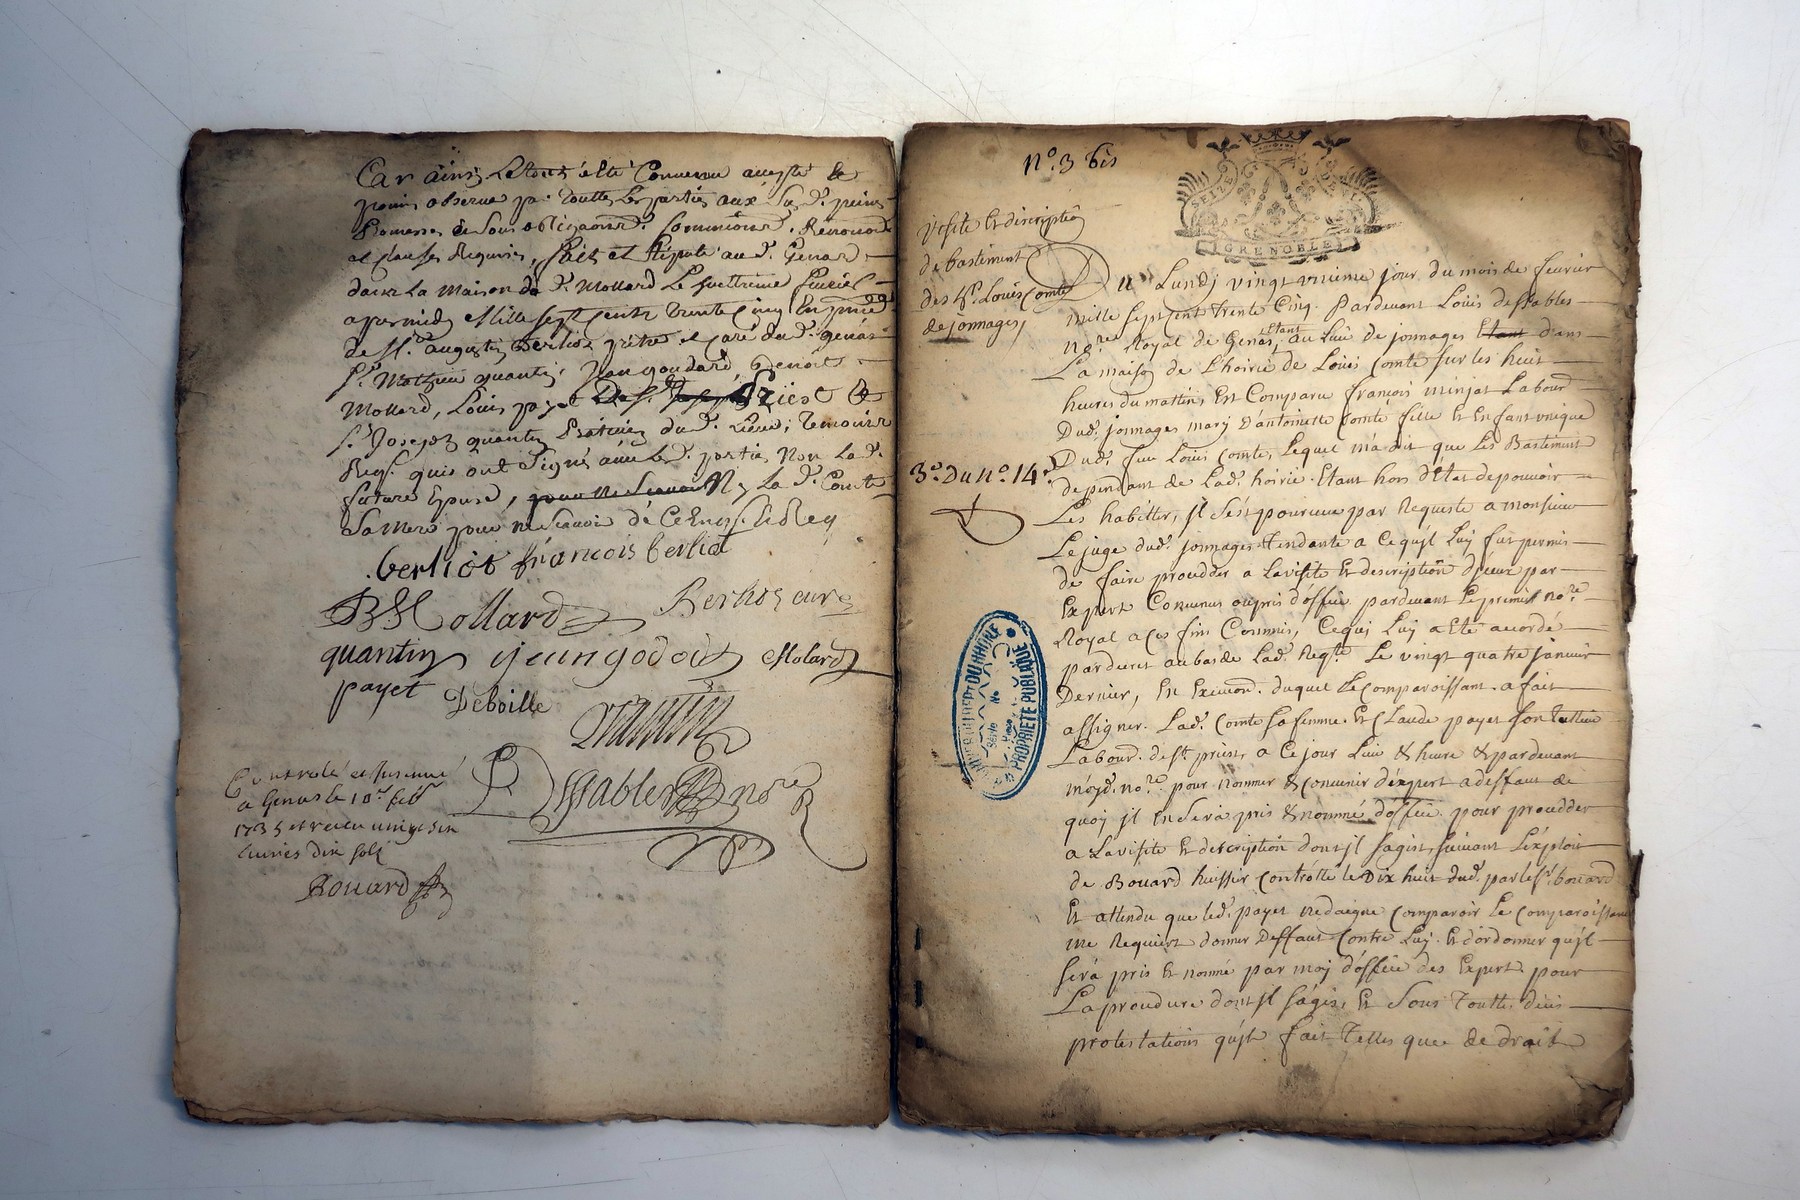 Car ainsi Letout été Convenu accepté &
promis observer par touttes Les parties aux Susd. peines
Promesses de Sous obligaons. Soumissions. Renonciaons
et clauses Requises, fait et stipulé aud. Genas
dans La maison du d. Mollard Le
apremidy Mille sept cents trente cinq En prece
de Mr. augustin Berlioz prêtre et curé dud. genas
Sr. Mathieu quantin, Jean goudard, Benoit
Mollard, Louis payet &
Sr. Joseph quantin dud. Lieu, Temoins
Reqs. qui ont Signé avec Led. parties Non La d.
future Epouse, Ny La d. Comte
Sa Mere pour ne Scavoir de Ce Enqs. & Req
berliot francois berliat
B Mollard Berlioz curé
quantin jean godod Molard
payet Deboille
quantin
Desffables nore R
Controlé et Insinué
a Genas le 10e febr
1735 et receu vingt six
Livres dix sols
Bouard
No. 3 bis
SEIZE
GRENOBLE
visite Et discription
de bastiment
des hs. Louis Comte
de jonnages
Du Lundj vingt unieme jour du mois de feuvrier
mille Septcent trente Cinq. Pardevant Louis desffables
nore. Royal de Genas, Etant au Lieu de jonnages Etant dans
La maison de L'hoirie de Louis Comte sur les huit
heures du mattin, Est Comparu francois minjat Labour.
Dud. jonnages mary D'antoinette Comte fille Et Enfant unique
Dud. feu Louis Comte, Lequel m'a dit que Les Bastiment
dependant de Lad. hoirie Etant hors d'Etat de pouvoir
Les habitter, jl s'est pourvu par Requeste a monsieur
Le juge dud. jonnages tendante a Ce qu'jl Luy fut permis
de faire procedder a La visite Et description d'jceux par
Expert Convenus ou pris d'office pardevant Le premier nore.
Royal a Ces fins Commis, Ce qui Luy a Eté accordé
par decret au bas de Lad. Reqte. Le vingt quatre janvier
Dernier, En Execuon. duquel Le Comparoissant a fait
assigner Lad. Comte sa femme Et Claude payet son Tutteur
Labour. de St. priest, a Ce jour Lieu & heure & pardevant
moyd. nore. pour nommer & Convenir d'expert a deffaut de
quoy jl En sera pris & nommé d'office pour procedder
a La visite Et description dont jl s'agit, suivant L'exploit
de Bouard huissier Controllé le Dix huit dud. par le Sr. bouard
Et attendu que led. payet ne daigne Comparoir Le Comparoissant
me Requiert donner Deffaut Contre Luy Et d'ordonner qu'jl
sera pris Et nommé par moy d'office des Expert pour
La procedure dont jl s'agit, Et Sous Toutte
protestations qu'jl fait Telles que de droit
3e. Du No. 14
DU RHONE
Série No
PROPRIÉTÉ PUBLIQUE